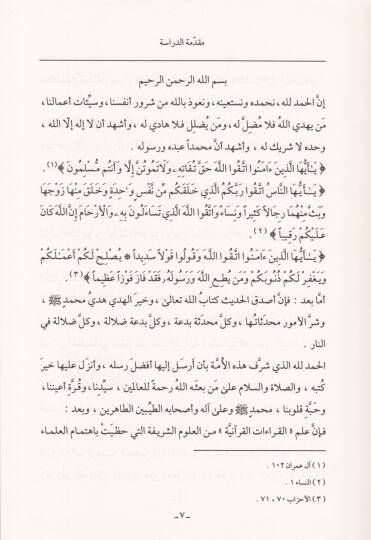 مقدّمة الدراسة
بسم الله الرحمن الرحيم
إنَّ الحمد لله، نحمده ونستعينه، ونعوذ بالله من شرور أنفسنا، وسيِّئات أعمالنا،
مَن يهدي اللهُ فلا مُضِلَّ له، ومَن يُضلِل فلا هادي له، وأشهد أن لا إله إلَّا الله،
وحده لا شريك له، وأشهد أنَّ محمداً عبده ورسوله.
﴿ يَـٰأَيُّهَا الَّذِينَ ءَامَنُوا اتَّقُوا اللَّهَ حَقَّ تُقَاتِهِ وَلَا تَمُوتُنَّ إِلَّا وَأَنتُم مُّسْلِمُونَ ﴾(١).
﴿ يَـٰأَيُّهَا النَّاسُ اتَّقُوا رَبَّكُمُ الَّذِي خَلَقَكُم مِّن نَّفْسٍ وَاحِدَةٍ وَخَلَقَ مِنْهَا زَوْجَهَا
وَبَثَّ مِنْهُمَا رِجَالاً كَثِيراً وَنِسَاءً وَاتَّقُوا اللَّهَ الَّذِي تَسَاءَلُونَ بِهِ وَالْأَرْحَامَ إِنَّ اللَّهَ كَانَ
عَلَيْكُمْ رَقِيباً ﴾(٢).
﴿ يَـٰأَيُّهَا الَّذِينَ ءَامَنُوا اتَّقُوا اللَّهَ وَقُولُوا قَوْلاً سَدِيداً * يُصْلِحْ لَكُمْ أَعْمَـٰلَكُمْ
وَيَغْفِرْ لَكُمْ ذُنُوبَكُمْ وَمَن يُطِعِ اللَّهَ وَرَسُولَهُ، فَقَدْ فَازَ فَوْزاً عَظِيماً ﴾(٣).
أما بعد: فإنَّ أصدق الحديث كتابُ الله تعالىٰ، وخيرَ الهدي هديُ محمدٍ ﷺ،
وشرَّ الأمور محدَثاتُها، وكلَّ محدَثة بدعة، وكلَّ بدعة ضلالة، وكلَّ ضلالة في
النار.
الحمد لله الذي شرَّف هذه الأُمَّة بأن أرسَل إليها أفضلَ رسله، وأنزَل عليها خيرَ
كُتبه، والصلاة والسلام علىٰ مَن بعثه اللهُ رحمةً للعالمين، سيِّدِنا، وقُرَّةِ أعيننا،
وحبَّةِ قلوبنا، محمدٍ ﷺ وعلىٰ آله وأصحابه الطيِّبين الطاهرين، وبعد:
فإنَّ علم «القراءات القرآنيَّة» من العلوم الشريفة التي حظيَتْ باهتمام العلماء
(١) آل عمران ١٠٢.
(٢) النساء ١.
(٣) الأحزاب ٧٠، ٧١.
-٧-